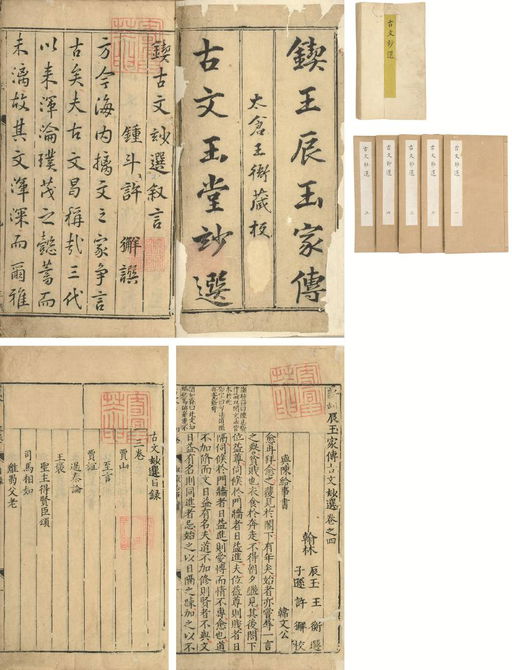 鍥王辰玉家傳
太倉王衙藏板
古文玉堂玅選
鍥古文玅選叙言
鍾斗許獬譔
方今海內摛文之家争言
古矣夫古文曷稱哉三代
以来渾淪璞茂之懿蓄而
未漓故其文渾深而爾雅
古文鈔選
古文鈔選
古文鈔選
古文鈔選
古文鈔選
古文鈔選
辰玉家傳古文玅選卷之四
翰林
辰玉王衡選
子遜許獬校
與陳給事書
韓文公
愈再拜愈之獲見於閣下有年矣始者亦嘗辱一言
之譽貧賤也衣食於奔走不得朝夕繼見其後閣下
位益尊伺候於門牆者日益進夫位益尊則賤者日
隔伺候於門牆者日益進則愛博而情不專愈也道
不加修而文日益有名夫道不加修則賢者不與文
日益有名則同進者忌始之以日隔之踈加之以不
古文玅選目錄
三卷
賈山
至言
賈誼
過秦論
王襃
聖主得賢臣頌
司馬相如
難蜀父老